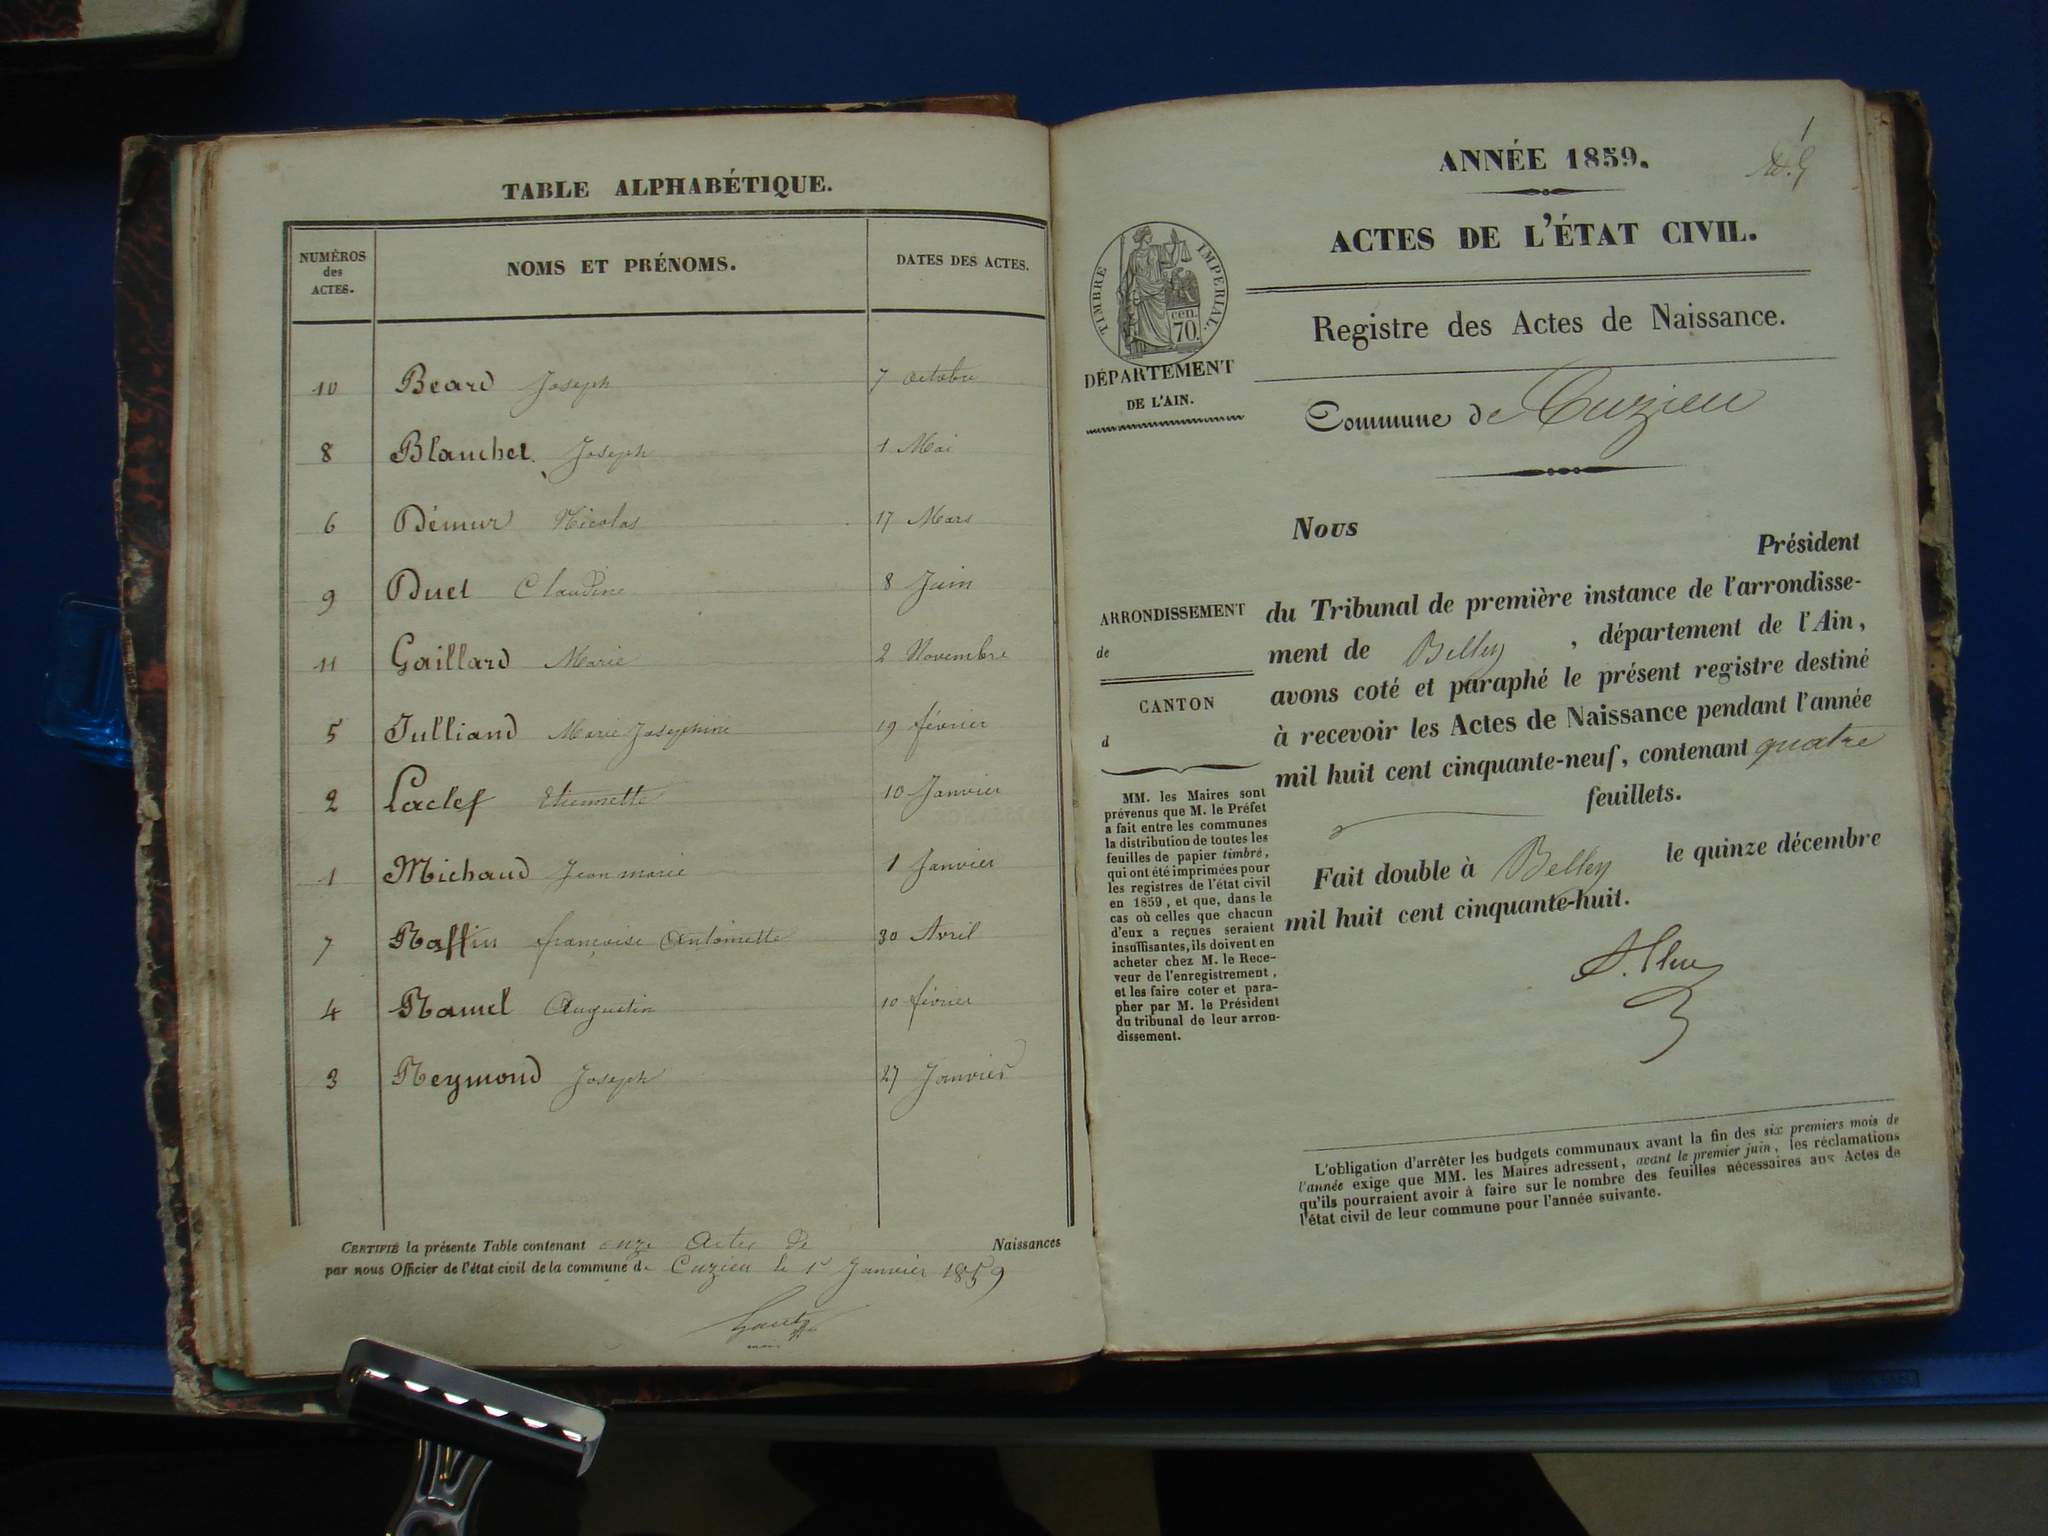 TABLE ALPHABÉTIQUE.
NUMÉROS des ACTES. NOMS ET PRÉNOMS. DATES DES ACTES.
10 Beard Joseph 7 octobre
8 Blanchet Joseph 1 Mai
6 Démur Nicolas 17 Mars
9 Duet Claudine 8 Juin
11 Gaillard Marie 2 Novembre
5 Julliand Marie Josephine 19 février
2 Laclef Etiennette 10 Janvier
1 Michaud Jean marie 1 Janvier
7 Raffin françoise Antoinette 30 Avril
4 Ramel Augustin 10 février
3 Reymond Joseph 27 Janvier
CERTIFIÉ la présente Table contenant onze Actes de Naissances
par nous Officier de l'état civil de la commune de Cuzieu le 1er Janvier 1859
1
ANNÉE 1859.
ACTES DE L'ÉTAT CIVIL.
TIMBRE IMPÉRIAL.
cen.
70.
DÉPARTEMENT
DE L'AIN.
Registre des Actes de Naissance.
Commune de Cuzieu
ARRONDISSEMENT
de
CANTON
d
MM. les Maires sont
prévenus que M. le Préfet
a fait entre les communes
la distribution de toutes les
feuilles de papier timbré,
qui ont été imprimées pour
les registres de l'état civil
en 1859, et que, dans le
cas où celles que chacun
d'eux a reçues seraient
insuffisantes, ils doivent en
acheter chez M. le Rece-
veur de l'enregistrement,
et les faire coter et para-
pher par M. le Président
du tribunal de leur arron-
dissement.
Nous
Président
du Tribunal de première instance de l'arrondisse-
ment de Belley, département de l'Ain,
avons coté et paraphé le présent registre destiné
à recevoir les Actes de Naissance pendant l'année
mil huit cent cinquante-neuf, contenant quatre
feuillets.
Fait double à Belley le quinze décembre
mil huit cent cinquante-huit.
L'obligation d'arrêter les budgets communaux avant la fin des six premiers mois de
l'année exige que MM. les Maires adressent, avant le premier juin, les réclamations
qu'ils pourraient avoir à faire sur le nombre des feuilles nécessaires aux Actes de
l'état civil de leur commune pour l'année suivante.